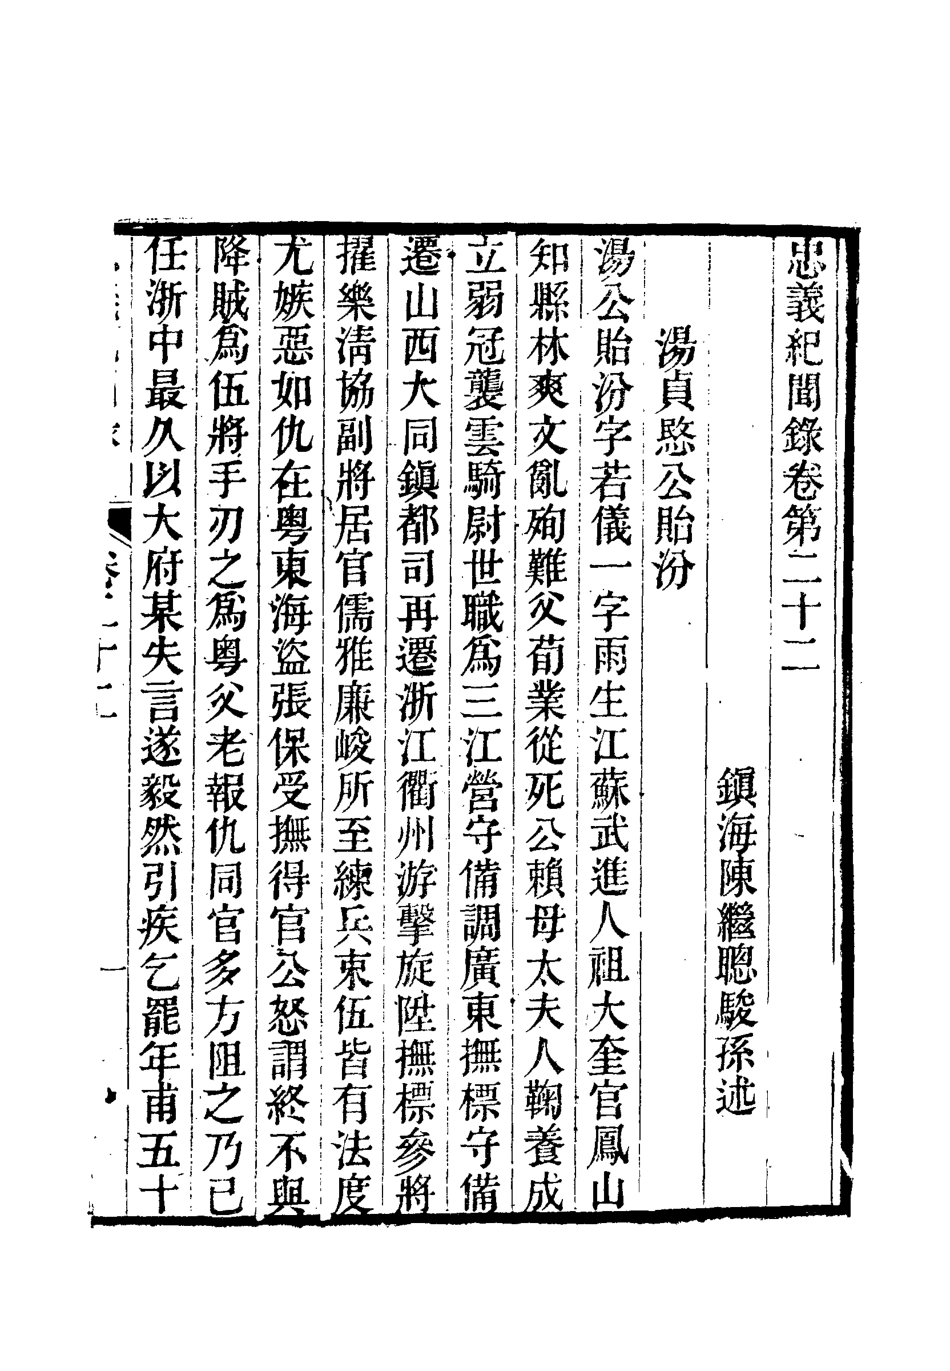 忠義紀聞錄卷第二十二
鎮海陳繼聰駿孫述
湯貞愍公貽汾
湯公貽汾字若儀一字雨生江蘇武進人祖大奎官鳳山
知縣林爽文亂殉難父荀業從死公賴母太夫人鞠養成
立弱冠襲雲騎尉世職爲三江營守備調廣東撫標守備
遷山西大同鎮都司再遷浙江衢州游擊旋陞撫標參將
擢樂淸協副將居官儒雅廉峻所至練兵束伍皆有法度
尤嫉惡如仇在粵東海盜張保受撫得官公怒謂終不與
降賊爲伍將手刃之爲粵父老報仇同官多方阻之乃已
任浙中最久以大府某失言遂毅然引疾乞罷年甫五十